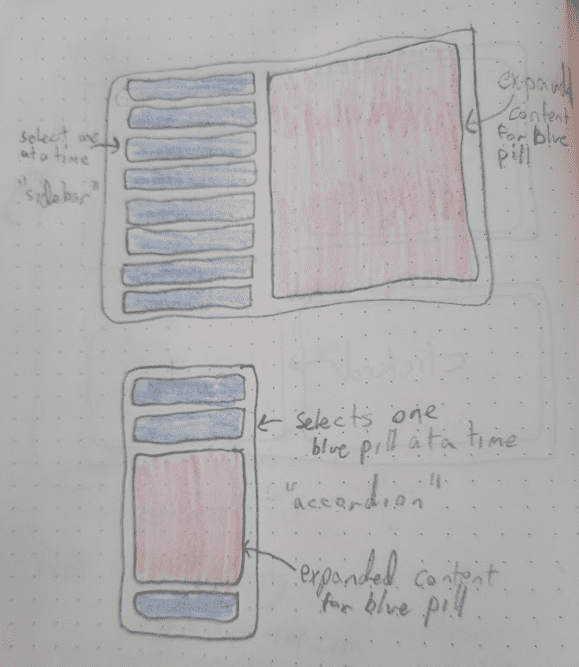 select one
at a time
"sidebar"
expanded
content
for blue
pill
selects one
blue pill at a time
"accardion"
expanded content
for blue pill